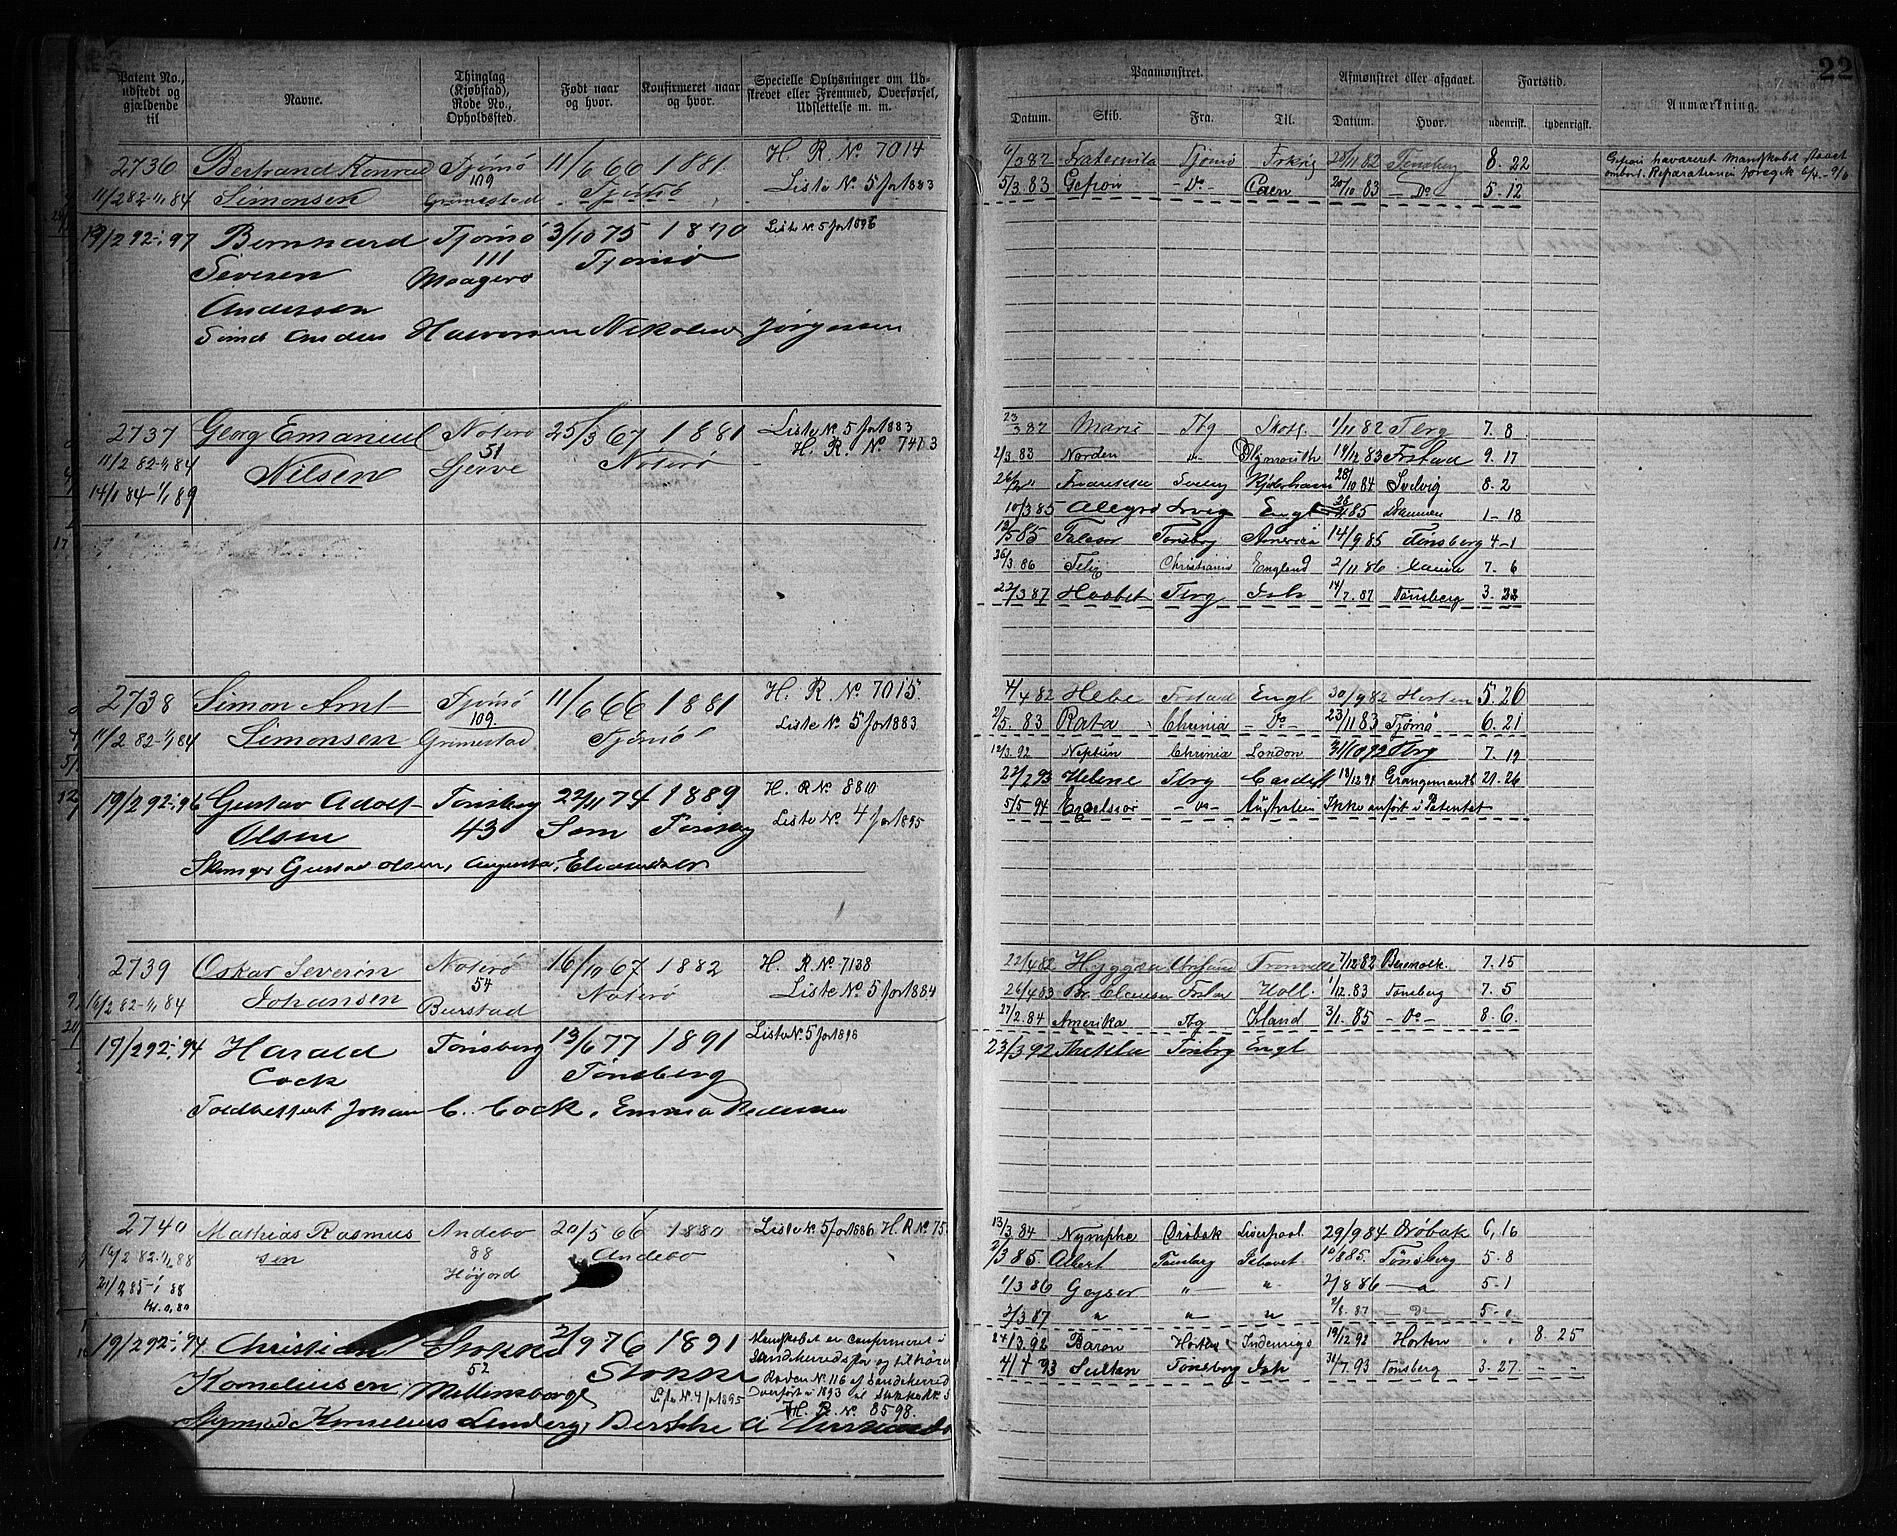 22
Patent No., udstedt og gjældende til
Navne.
Thinglag (Kjøbstad), Rode No., Opholdssted.
Født naar og hvor.
Konfirmeret naar og hvor.
Specielle Oplysninger om Udstrevet eller Fremmed, Overførsel, Udslettelse m. m.
Paamønstret.
Afmønstret eller afgaaet.
Fartstid.
Anmærkning.
Datum. Skib. Fra. Til. Datum. Hvor. udenrigsk. indenrigst.
2736 Bertrand Konrad Tjömö 11/6 66 1881 H. R. No 7014
11/2 82-1/1 84 Simonsen 109 Grimestad Tjömö Liste No 5 for 1883
6/3 82 Fraternita Tjömö Frkrig 28/11 82 Tønsberg 8. 22
5/3. 83 Gefion - Do - Caen 20/10 83 - Do 5-12
Gefion havareret Mandskabet
ombord. Reparationen foregik
19/2 92-1/1 97 Bernhard Tjömö 3/10 75 1890 Liste No 5 for 1896
Seversen 111 Tjömö
Andersen Maagerö
Anders Halvorsen Nikoline Jörgensen
2737 Georg Emanuel Nöterö 25/3 67 1881 Liste No 5 for 1883
11/2 82-1/1 84 Nilsen 51 Gjerve Nöterö H. R. No 7413
14/1 84-1/1 89
23/3 82 Marie Tbg Skotl. 1/11 82 Tbrg 7. 8
2/3. 83 Norden " Plymouth 19/12 83 Frstad 9. 17
26/2 " Franziska Kjöbenhavn 28/10 84 Svelvig 8. 2
10/3 85 Allegro Lrvig Engl 28/4 85 Drammen 1-18
12/5 85 Falcon Tønsbrg Amerika 14/9. 85 Tønsberg 4-1
26/3. 86 Felix Christiania England 2/11 86 7. 6
22/3 87 Haabet Tbrg Ish 14/7. 87 Tønsberg 3. 22
2738 Simon Arnt Tjömö 11/6 66 1881 H. R. No 7015
11/2 82-1/1 84 Simonsen 109. Grimestad Tjömö Liste No 5 for 1883
4/4 82 Hebe Frstad Engl 30/9 82 Horten 5. 26
2/5. 83 Rata Chrinia - Do - 23/11 83 Tjömö 6. 21
12/3. 92 Neptun Chrinia London 31/10 92 Tbrg 7. 19
22/2 93 Helene Tbrg Cardiff 18/12 94 Grangemouth 21-26
5/5 94 Excelsior - Do - Australien Ikke anført i Patentet
19/2 92-1/1 96 Gustav Adolf Tønsberg 22/11 74 1889 H. R No 8810
Olsen 43 Sem Tønsbg Liste No 4 for 1895
Gustav Olsen, Augusta
2739 Oskar Severin Nöterö 16/10 67 1882 H. R No 7138
16/2 82-1/1 84 Johansen 54 Burstad Nöterö Liste No 5 for 1884
22/4 82 Hygæa 7/12 82 7. 15
26/4 83 Br. Clausen Frstad Holl. 1/12. 83 Tønsberg 7. 5
27/2. 84 Amerika Tbg Island 3/1. 85 - Do - 8-6.
23/3 92 Thekla Tønsbrg Engl
19/2 92-1/1 94 Harald Tønsberg 13/6 77 1891 Liste No 5 for 1898
Cock Tønsberg
Toldbetjent Johan C. Cock, Emma Pedersen
2740 Mathias Rasmus Andebo 20/5 66 1880 Liste No 5 for 1886 H. R No 75
16/2 82-1/1 88 sen 88 Andebo
21/2 85-1/1 88 Höyord
Kr. 0,80
13/3. 84 Nymphe Dröbak Liverpool 29/9 84 Dröbak 6, 16
2/3 85. Albert Tønsberg Ishavet 10/8 85. Tønsberg 5-8
1/3 86 Geyser " " 7/8 86 - " 5-1
2/3 87 " " " 2/8. 87 - Do - 5-0
24/3. 92 Baron Horten Indenrigs 19/12 92 Horten " " 8. 25
4/4 93 Sultan Tønsberg Ish 31/7. 93 Tønsberg 3-27 " "
19/2 92-1/1 94 Christian Stokke 2/9 76 1891 Mandskabet er confirmeret i
Korneliussen 52 Stokke Sandeherreds og tilhörer
Möllensborge Liste No 4 for 1895 Roden No 116 af Sandeherred
Overfört i 1893 til Stokke
H. R. No 8598.
Kornelius